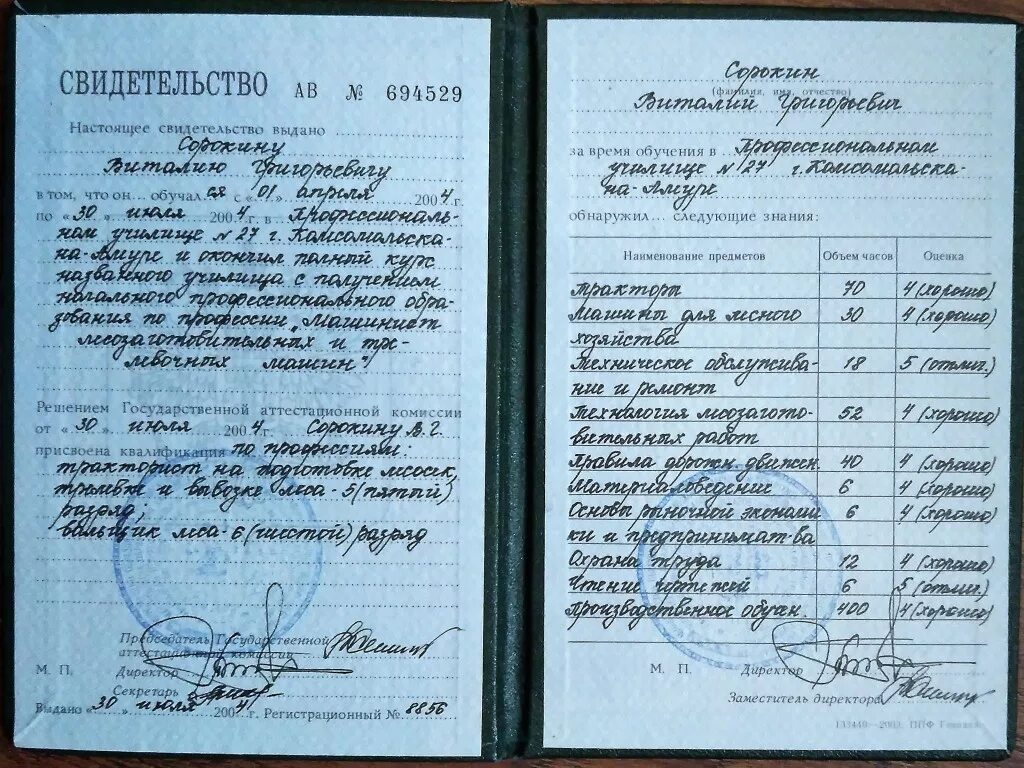 СВИДЕТЕЛЬСТВО АВ № 694529
Настоящее свидетельство выдано
Сорокину
Виталию Григорьевичу
в том, что он обучался с «01» апреля 2004
по «30» июля 2004 г. в Профессиональ-
ном училище №27 г. Комсомольска-
на-Амуре и окончил полный курс
названного училища с получением
начального профессионального обра-
зования по профессии „Машинист
лесозаготовительных и тре-
левочных машин"
Решением Государственной аттестационной комиссии
от «30» июля 2004 г. Сорокину В.Г.
присвоена квалификация по профессиям:
тракторист на подготовке лесосек,
трелевке и вывозке леса - 5 (пятый)
разряд;
вальщик леса - 6 (шестой) разряд
Председатель Государственной
аттестационной комиссии
М. П. Директор
Секретарь
Выдано «30» июля 2004 г. Регистрационный № 8856
Сорокин
(фамилия, имя, отчество)
Виталий Григорьевич
за время обучения в Профессиональном
училище №27 г. Комсомольска-
на-Амуре
обнаружил... следующие знания:
Наименование предметов Объем часов Оценка
Тракторы 70 4 (хорошо)
Машины для лесного 30 4 (хорошо)
хозяйства
Техническое обслужива- 18 5 (отлич.)
ние и ремонт
Технология лесозагото- 52 4 (хорошо)
вительных работ
Правила дорожн движен. 40 4 (хорошо)
Материаловедение 6 4 (хорошо)
Основы рыночной экономи 6 4 (хорошо)
ки и предпринимат-ва
Охрана труда 12 4 (хорошо)
Чтение чертежей 6 5 (отлич.)
Производственное обучен. 400 4 (хорошо)
М. П. Директор
Заместитель директора